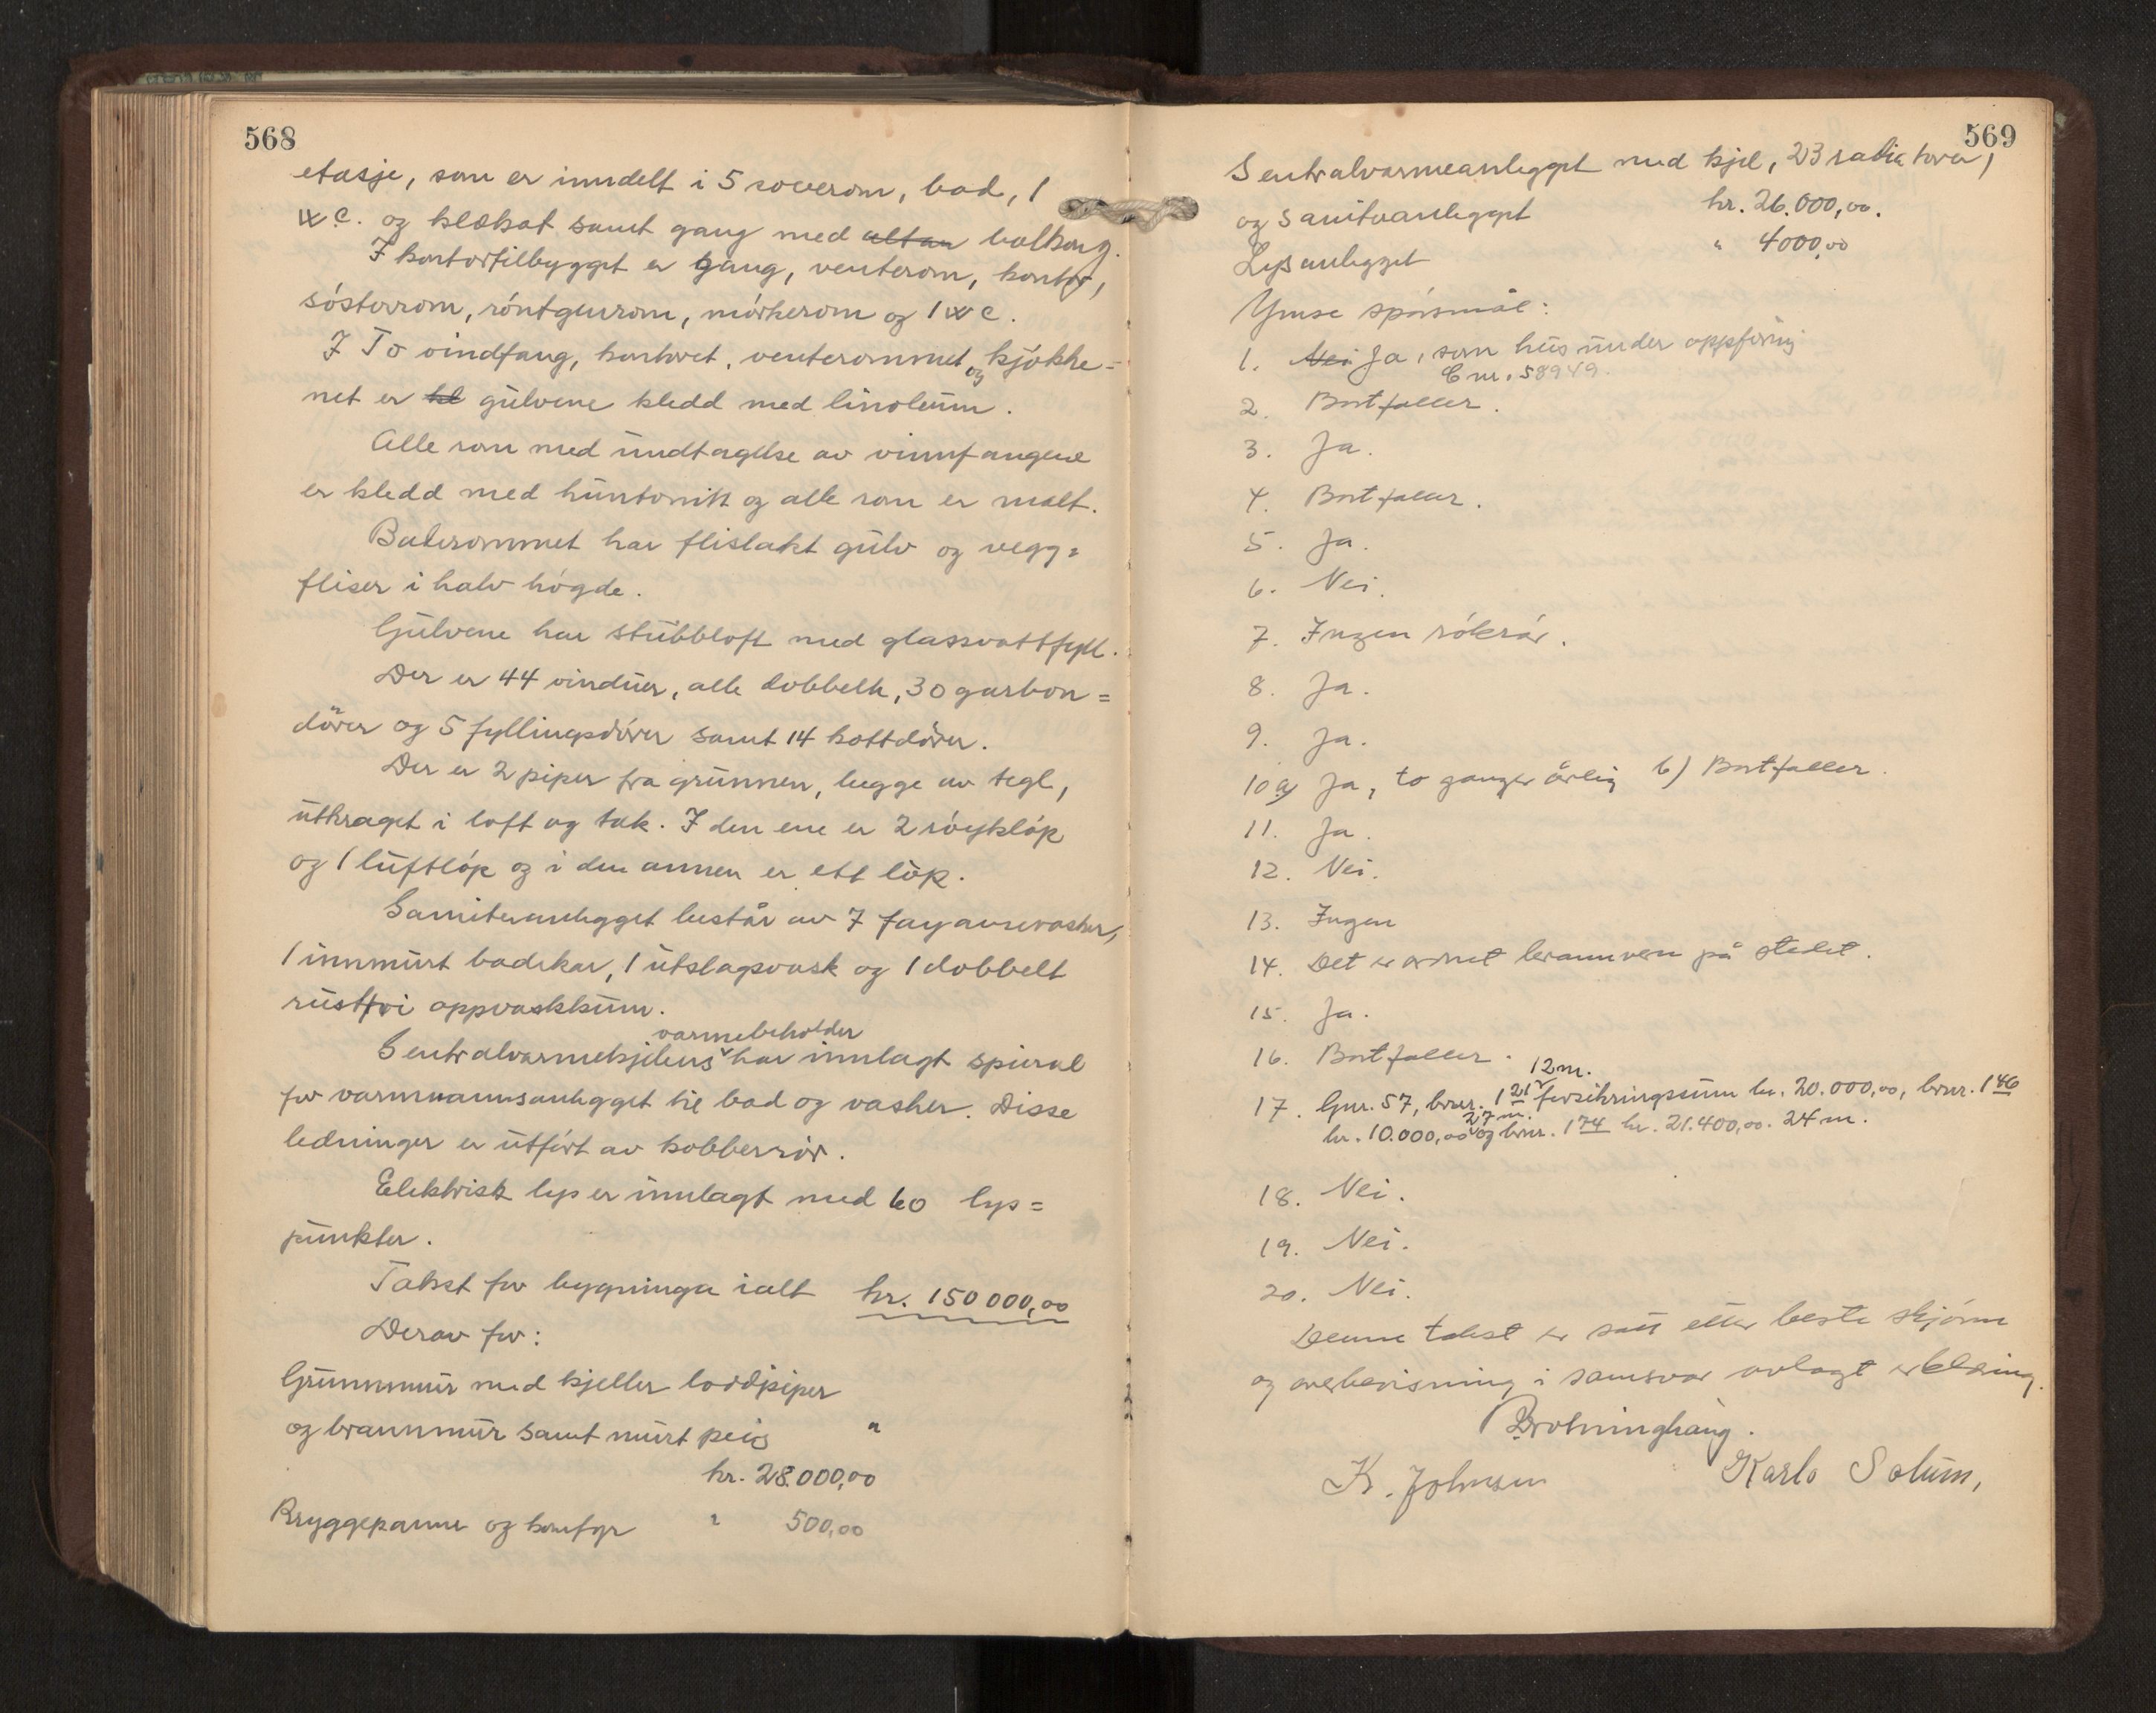 568
etasje, som er inndelt i 5 soverom, bad, 1
w c. og klækot samt gang med altan balkong.
I kontortilbygget er gang, venterom, kontor,
søsterrom, røntgenrom, mørkerom og 1 w c.
I To vindfang, kontoret, venterommet og kjøkke=
net er kl gulvene kledd med linoleum.
Alle rom med undtagelse av vinnfangene
er kledd med huntonitt og alle rom er malt.
Baderommet har flislakt gulv og vegg=
fliser i halv høgde.
Gulvene har stubbloft med glassvattfyll.
Der er 44 vinduer, alle dobbelte, 30 gurbon=
dører og 5 fyllingsdører samt 14 kottdører.
Der er 2 piper fra grunnen, begge av tegl,
utkraget i loft og tak. I den ene er 2 røykløp
og 1 luftløp og i den annen er ett løp.
Saniteranlegget består av 7 fayansevasker,
1 innmurt badekar, 1 utslagsvask og 1 dobbelt
rustfri oppvaskkum.
varmebeholder
Sentralvarmekjelens har innlagt spiral
for varmvannsanlegget til bad og vasker. Disse
ledninger er utført av kobberrør.
Elektrisk lys er innlagt med 60 lys=
punkter.
Takst for bygninga ialt kr. 150 000,00
Derav for:
Grunnmur med kjeller loddpiper
og brannmur samt murt peis "
kr. 28.000,00
Bryggepanne og komfyr " 500,00
569
Sentralvarmeanlegget med kjel, 23 radiatorer,
og sanitæranlegget kr. 26.000,00.
Lysanlegget " 4000,00
Ymse spørsmål:
1. Nei Ja, som hus under oppføring
C nr. 58949.
2. Bortfaller.
3. Ja.
4. Bortfaller.
5. Ja.
6. Nei.
7. Ingen røkrør.
8. Ja.
9. Ja.
10 a) Ja, to ganger årlig b) Bortfaller.
11. Ja.
12. Nei.
13. Ingen
14. Det er ordnet brannvern på stedet.
15. Ja.
16. Bortfaller.
12 m.
17. Gnr. 57, brnr. 121 forsikringssum kr. 20.000,00, brnr. 146
27 m.
kr. 10.000,00 og brnr. 174 kr. 21.400,00. 24 m.
18. Nei.
19. Nei.
20. Nei.
Denne takst er satt etter beste skjønn
og overbevisning i samsvar avlagt erklæring.
Drotninghaug.
K. Johnsen Karlo Solum,